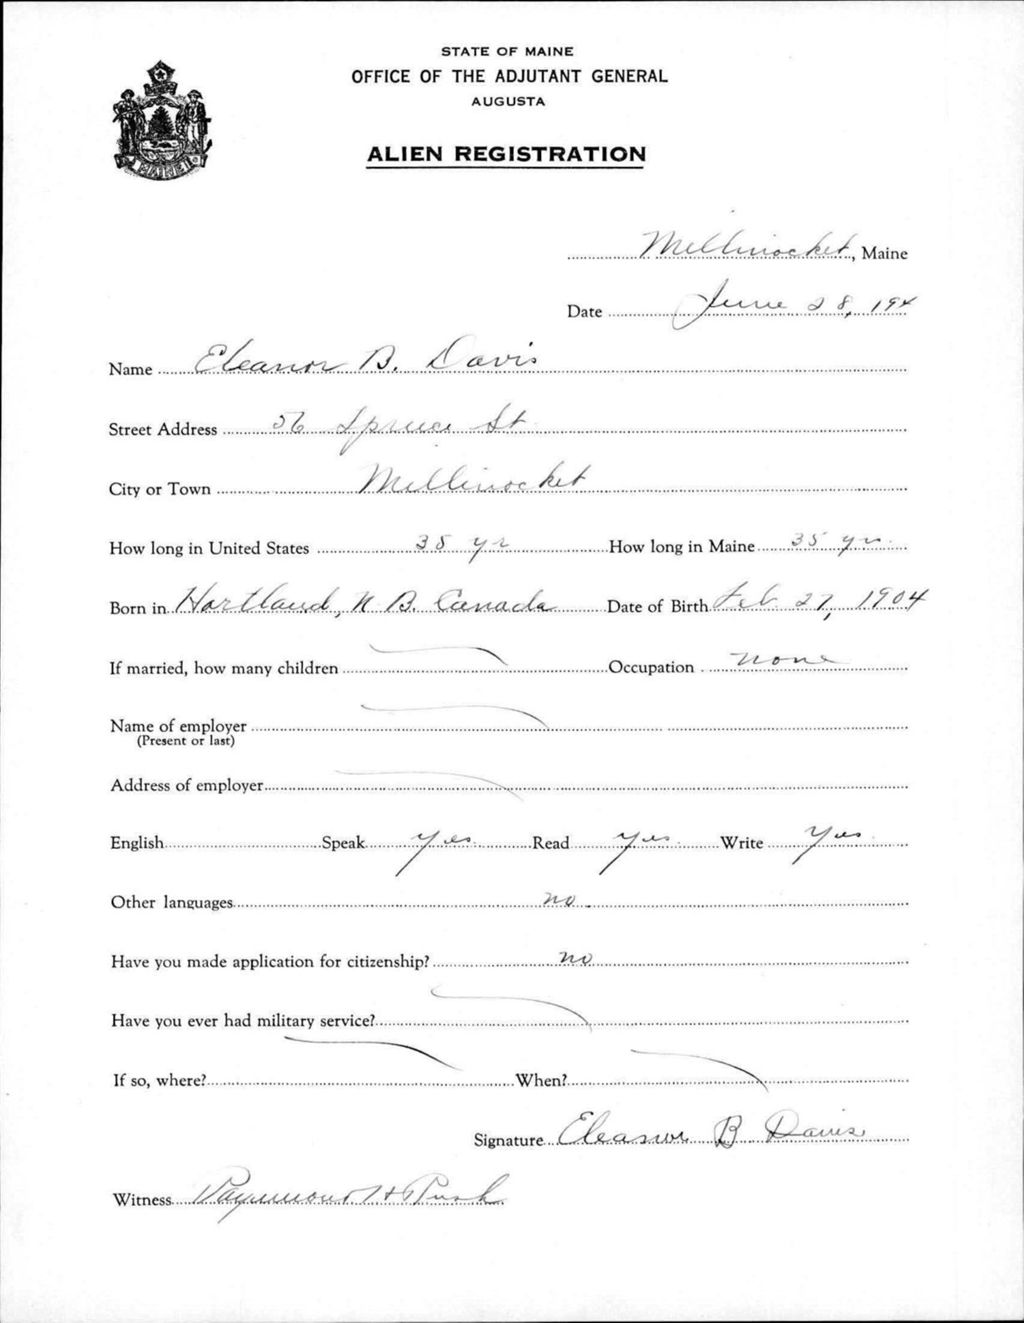 STATE OF MAINE
OFFICE OF THE ADJUTANT GENERAL
AUGUSTA
ALIEN REGISTRATION
MAINE
Millinocket, Maine
Date June 28, 194
Name Eleanor B. Davis
Street Address 56 Spruce St
City or Town Millinocket
How long in United States 35 yr How long in Maine 35 yrs
Born in Hartland, N B. Canada Date of Birth Feb. 27, 1904
If married, how many children Occupation none
Name of employer
(Present or last)
Address of employer
English Speak yes Read yes Write yes
Other languages no
Have you made application for citizenship? no
Have you ever had military service?
If so, where? When?
Signature Eleanor B Davis
Witness Raymond H